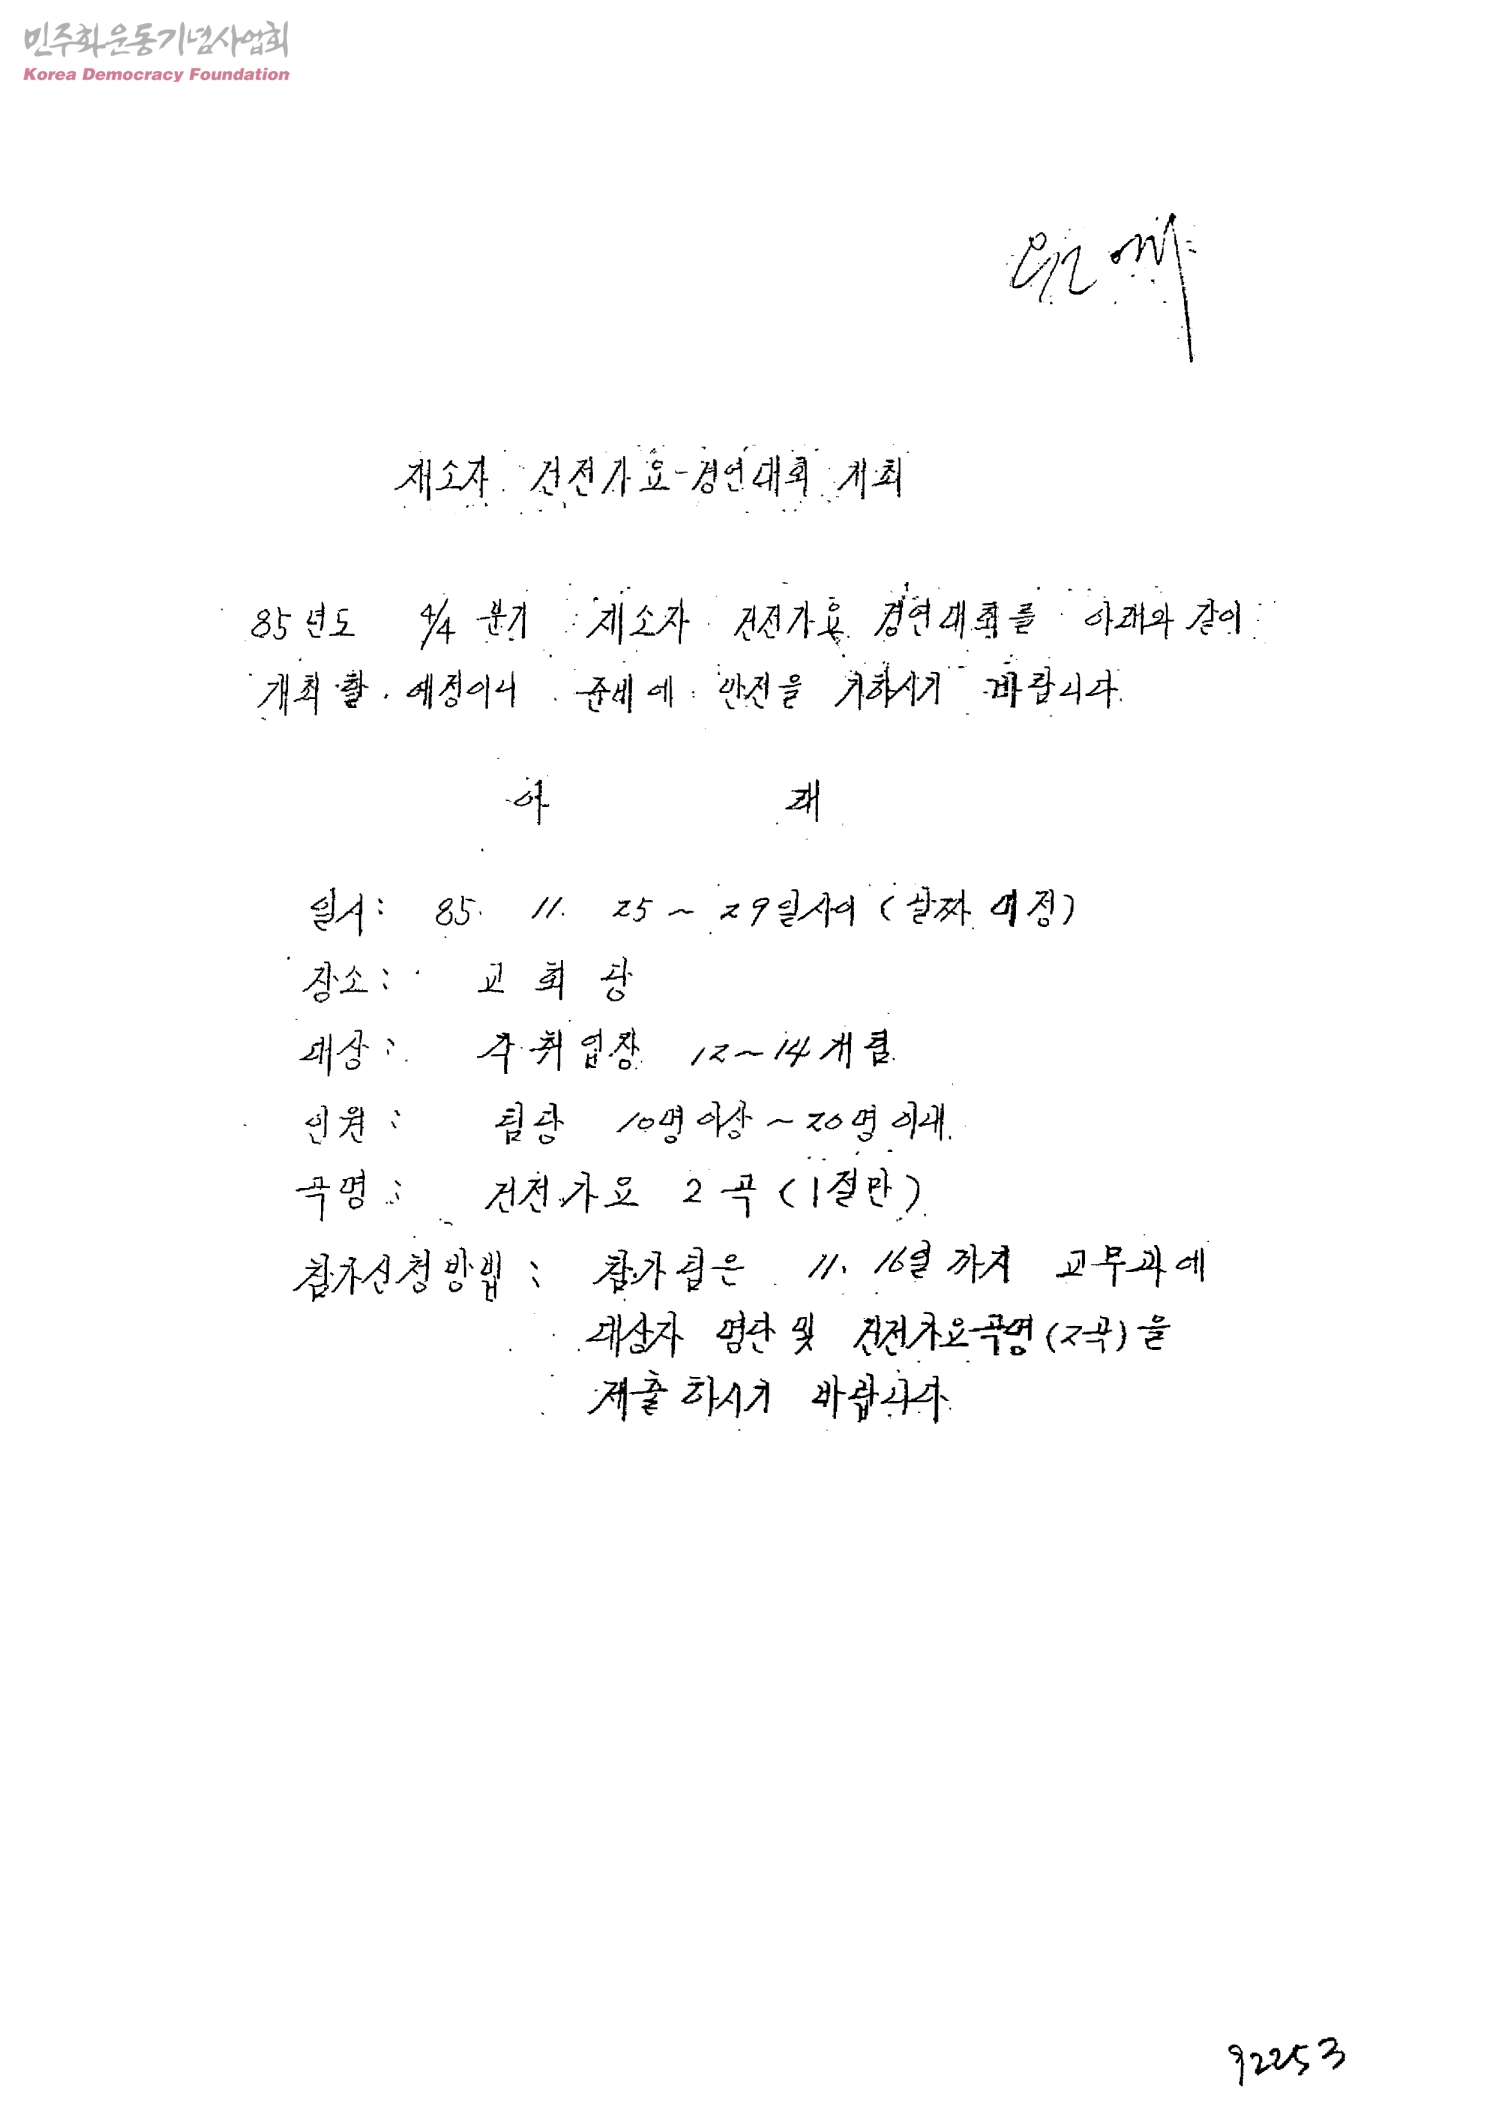 민주화운동기념사업회
Korea Democracy Foundation
재소자 건전가요-경연대회 개최
85년도 4/4 분기 재소자 건전가요 경연대회를 아래와 같이
개최 할 예정이니 준비에 만전을 기하시기 바랍니다.
아 래
일시: 85. 11. 25 ~ 29일사이 (날짜 미정)
장소: 교 회 당
대상: 각 취업장 12~14개팀
인원: 팀당 10명이상 ~ 20명 이내.
곡명: 건전가요 2곡 (1절만)
참가신청방법: 참가팀은 11. 16일까지 교무과에
대상자 명단 및 건전가요곡명(2곡)을
제출하시기 바랍니다.
92253